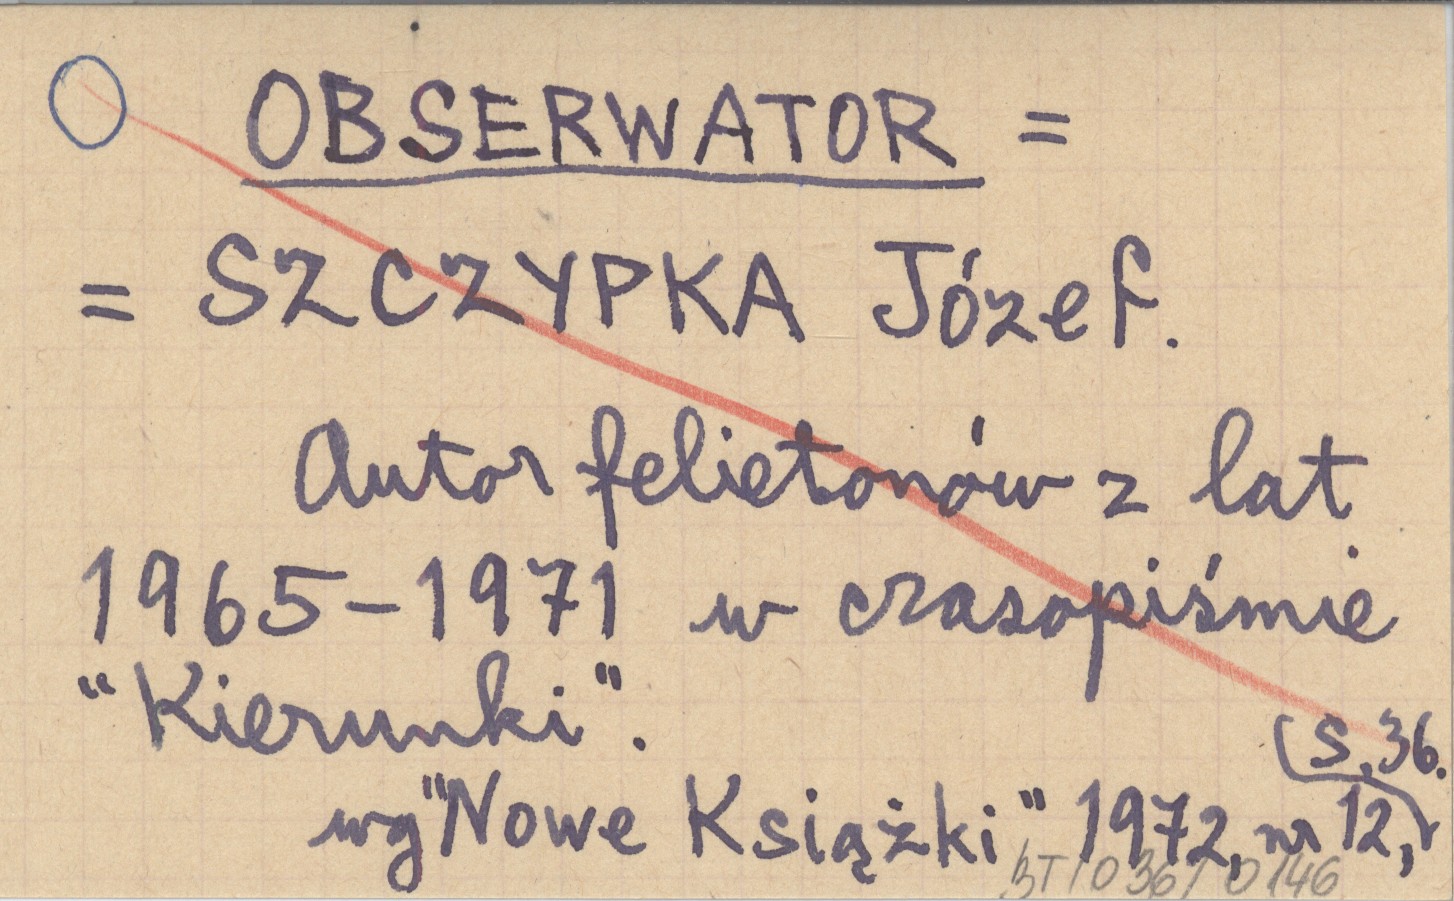 OBSERWATOR =
= SZCZYPKA Józef.
Autor felietonów z lat
1965-1971 w czasopiśmie
"Kierunki".
wg "Nowe Książki" 1972, nr 12,
s. 36.
BT/036/0146